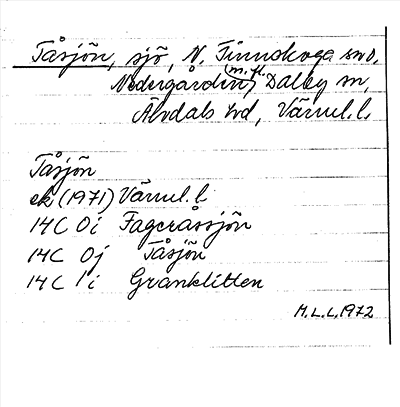 Tåsjön, sjö, N. Finnskoga sn o.
Nedergården m.fl., Dalby sn,
Älvdals hd, Värml. l.
Tåsjön
ek (1971) Värml. l
14C 0i Fageråssjön
14C 0j Tåsjön
14C 1i Granklitten
M.L.L. 1972